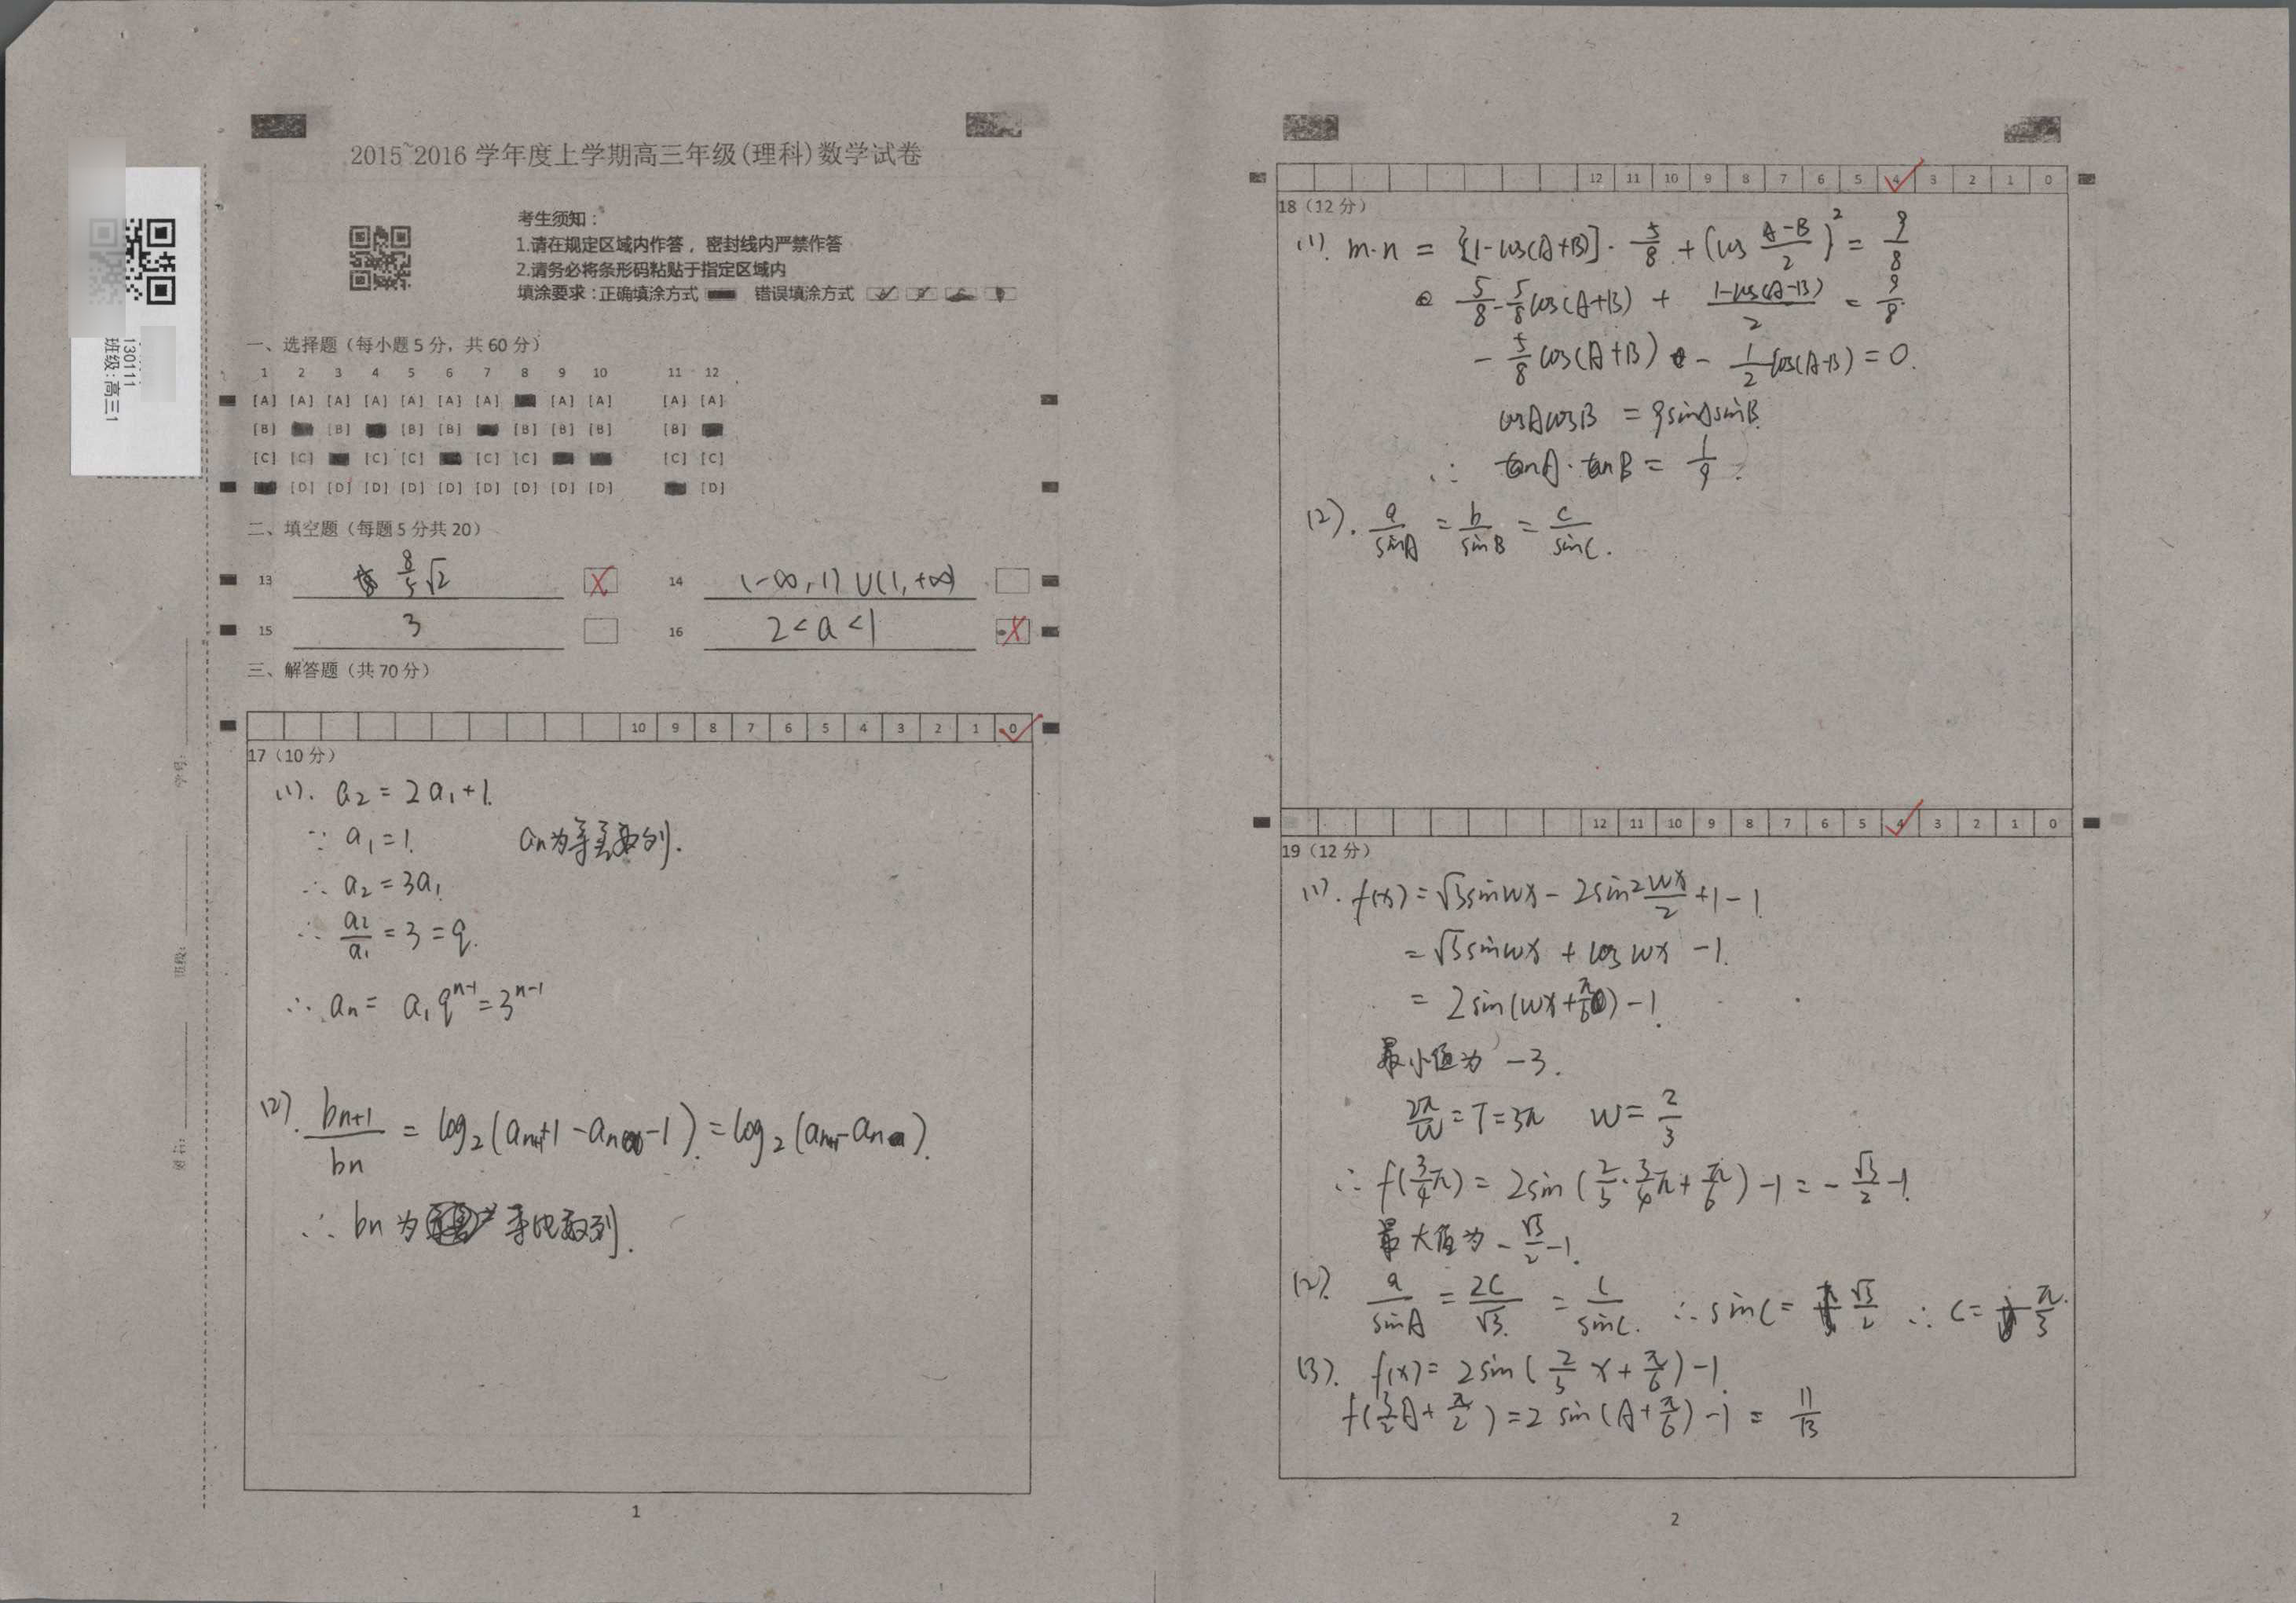 2015~2016 学年度上学期高三年级(理科)数学试卷
考生须知：
1.请在规定区域内作答，密封线内严禁作答
2.请务必将条形码粘贴于指定区域内
填涂要求：正确填涂方式 错误填涂方式
130111
班级:高三1
一、选择题（每小题5分，共60分）
1 2 3 4 5 6 7 8 9 10 11 12
[A] [A] [A] [A] [A] [A] [A] [A] [A] [A] [A]
[B] [B] [B] [B] [B] [B] [B] [B]
[C] [C] [C] [C] [C] [C] [C] [C]
[D] [D] [D] [D] [D] [D] [D] [D] [D] [D]
二、填空题（每题5分共20）
13 8/5 √2
14 (-∞,1)∪(1,+∞)
15 3
16 2<a<1
三、解答题（共70分）
10 9 8 7 6 5 4 3 2 1 0
17（10分）
(1). a₂=2a₁+1.
∵ a₁=1. an为等差数列.
∴ a₂=3a₁
∴ a₂/a₁=3=q.
∴ an= a₁qⁿ⁻¹=3ⁿ⁻¹
(2). bn+1/bn = log₂(an+1+1-an-1)=log₂(an+1-an).
∴ bn为等比数列.
学号:
班级:
姓名:
1
12 11 10 9 8 7 6 5 4 3 2 1 0
18（12分）
(1). m·n = [1-cos(A+B)]·5/8+(cos A-B/2)²=9/8
5/8-5/8cos(A+B) + 1-cos(A-B)/2 = 9/8
-5/8cos(A+B) - 1/2cos(A-B)=0.
cosAcosB = 9sinAsinB.
∴ tanA·tanB= 1/9.
(2). a/sinA = b/sinB = c/sinC.
12 11 10 9 8 7 6 5 4 3 2 1 0
19（12分）
(1). f(x)=√3sinwx-2sin²wx/2+1-1
=√3sinwx + coswx -1.
= 2sin(wx+π/6)-1.
最小值为 -3.
2π/w=T=3π w=2/3
∴ f(3/4π)= 2sin(2/3·3/4π+π/6)-1=-√3/2-1.
最大值为-√3/2-1.
(2). a/sinA = 2c/√3. = c/sinC. ∴sinC= √3/2 ∴ C= π/3.
(3). f(x)=2sin(2/3 x+π/6)-1.
f(3/2A+π/2)=2 sin(A+π/6)-1= 11/13
2